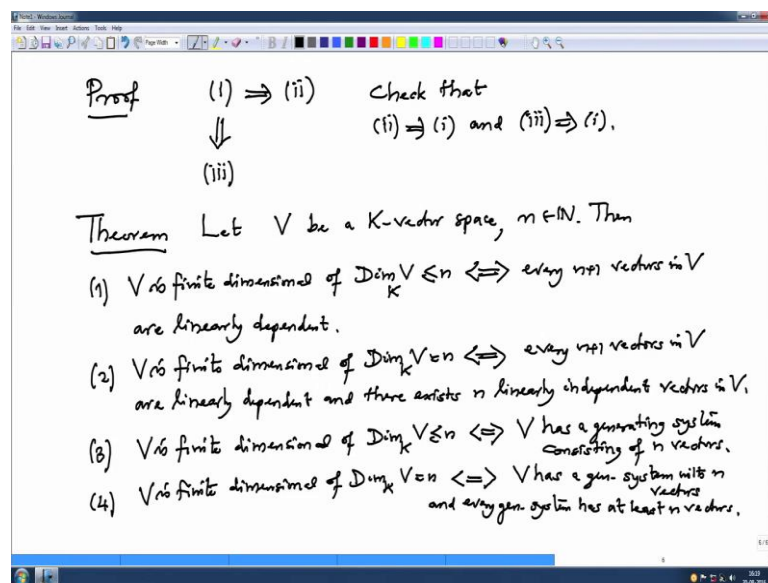 Note1 - Windows Journal
File Edit View Insert Actions Tools Help
Page Width
Proof (i) ⇒ (ii) Check that
(ii) ⇒ (i) and (iii) ⇒ (i).
⇓
(iii)
Theorem Let V be a K-vector space, n ∈ ℕ. Then
(1) V is finite dimensional of Dim_K V ≤ n ⇔ every n+1 vectors in V
are linearly dependent.
(2) V is finite dimensional of Dim_K V = n ⇔ every n+1 vectors in V
are linearly dependent and there exists n linearly independent vectors in V.
(3) V is finite dimensional of Dim_K V ≤ n ⇔ V has a generating system
consisting of n vectors.
(4) V is finite dimensional of Dim_K V = n ⇔ V has a gen. system with n
vectors
and every gen. system has at least n vectors.
6/6
6
16:19